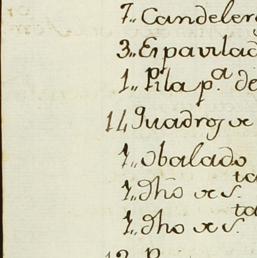 7,, Candeler
3,, Espavilad
1,, Pila p.ª de
14 Quadros de
1,, obalado
1,, dho de S.ta
1,, dho de S.ta